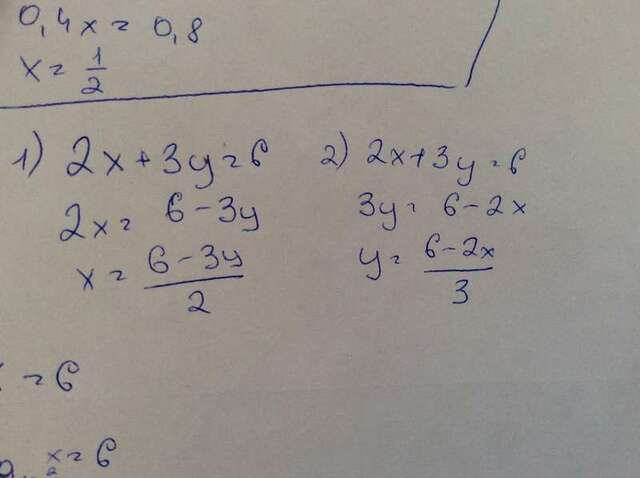 0,4x = 0,8
x = 1/2
1) 2x + 3y = 6
2x = 6 - 3y
x = (6 - 3y)/2
2) 2x + 3y = 6
3y = 6 - 2x
y = (6 - 2x)/3
= 6
x = 6